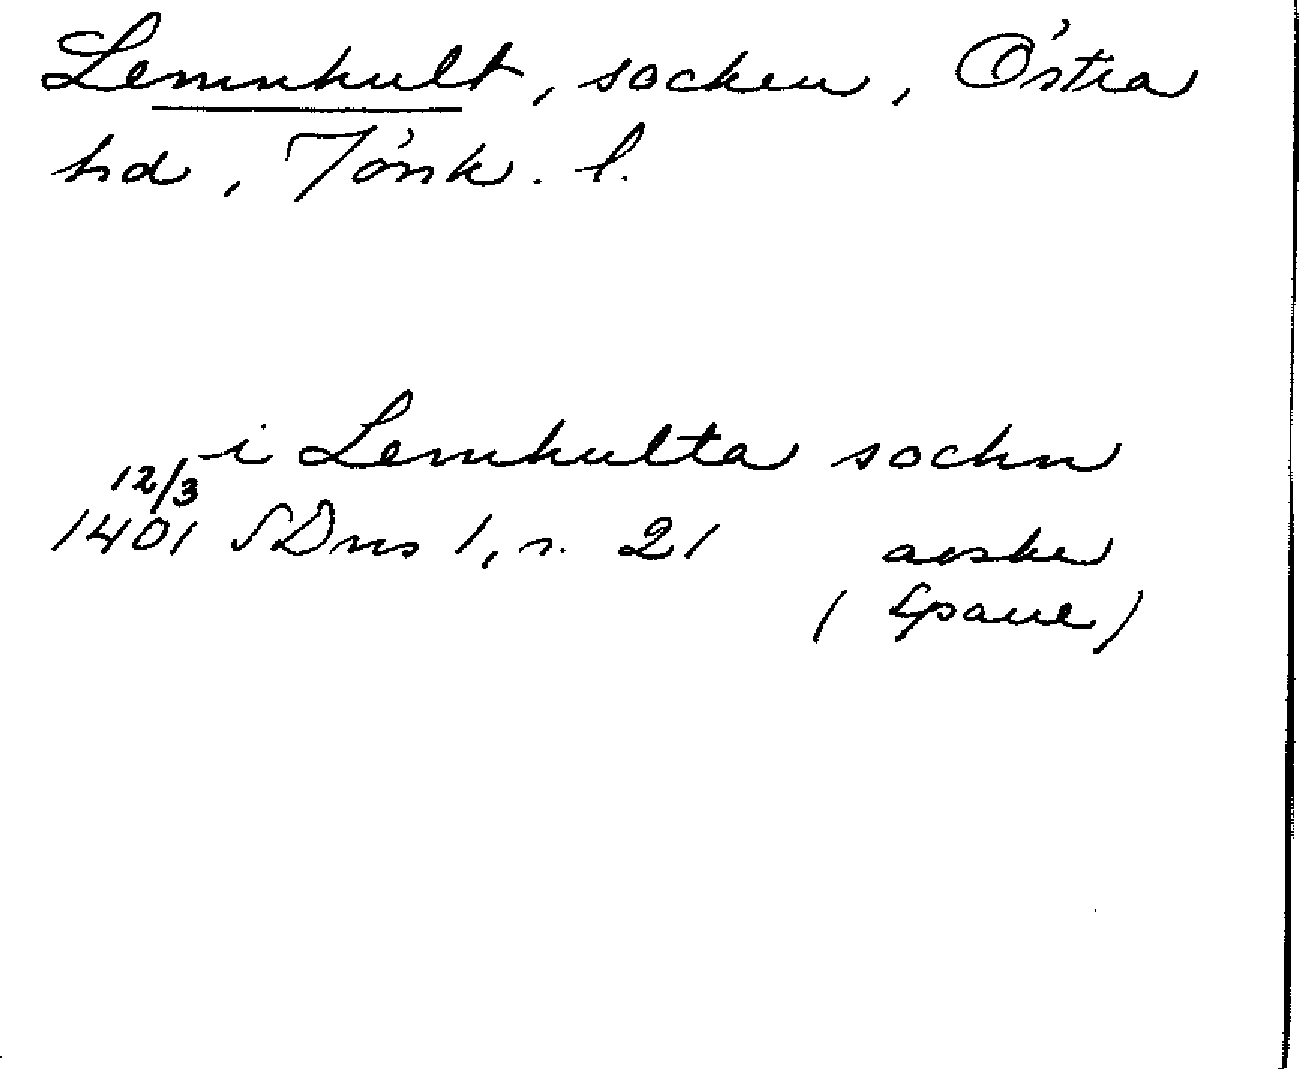 Lemnhult, socken, Östra
hd, Jönk. l.
i Lemhulta sochn
12/3
1401 SDns 1, s. 21 avskr
(Spaul)